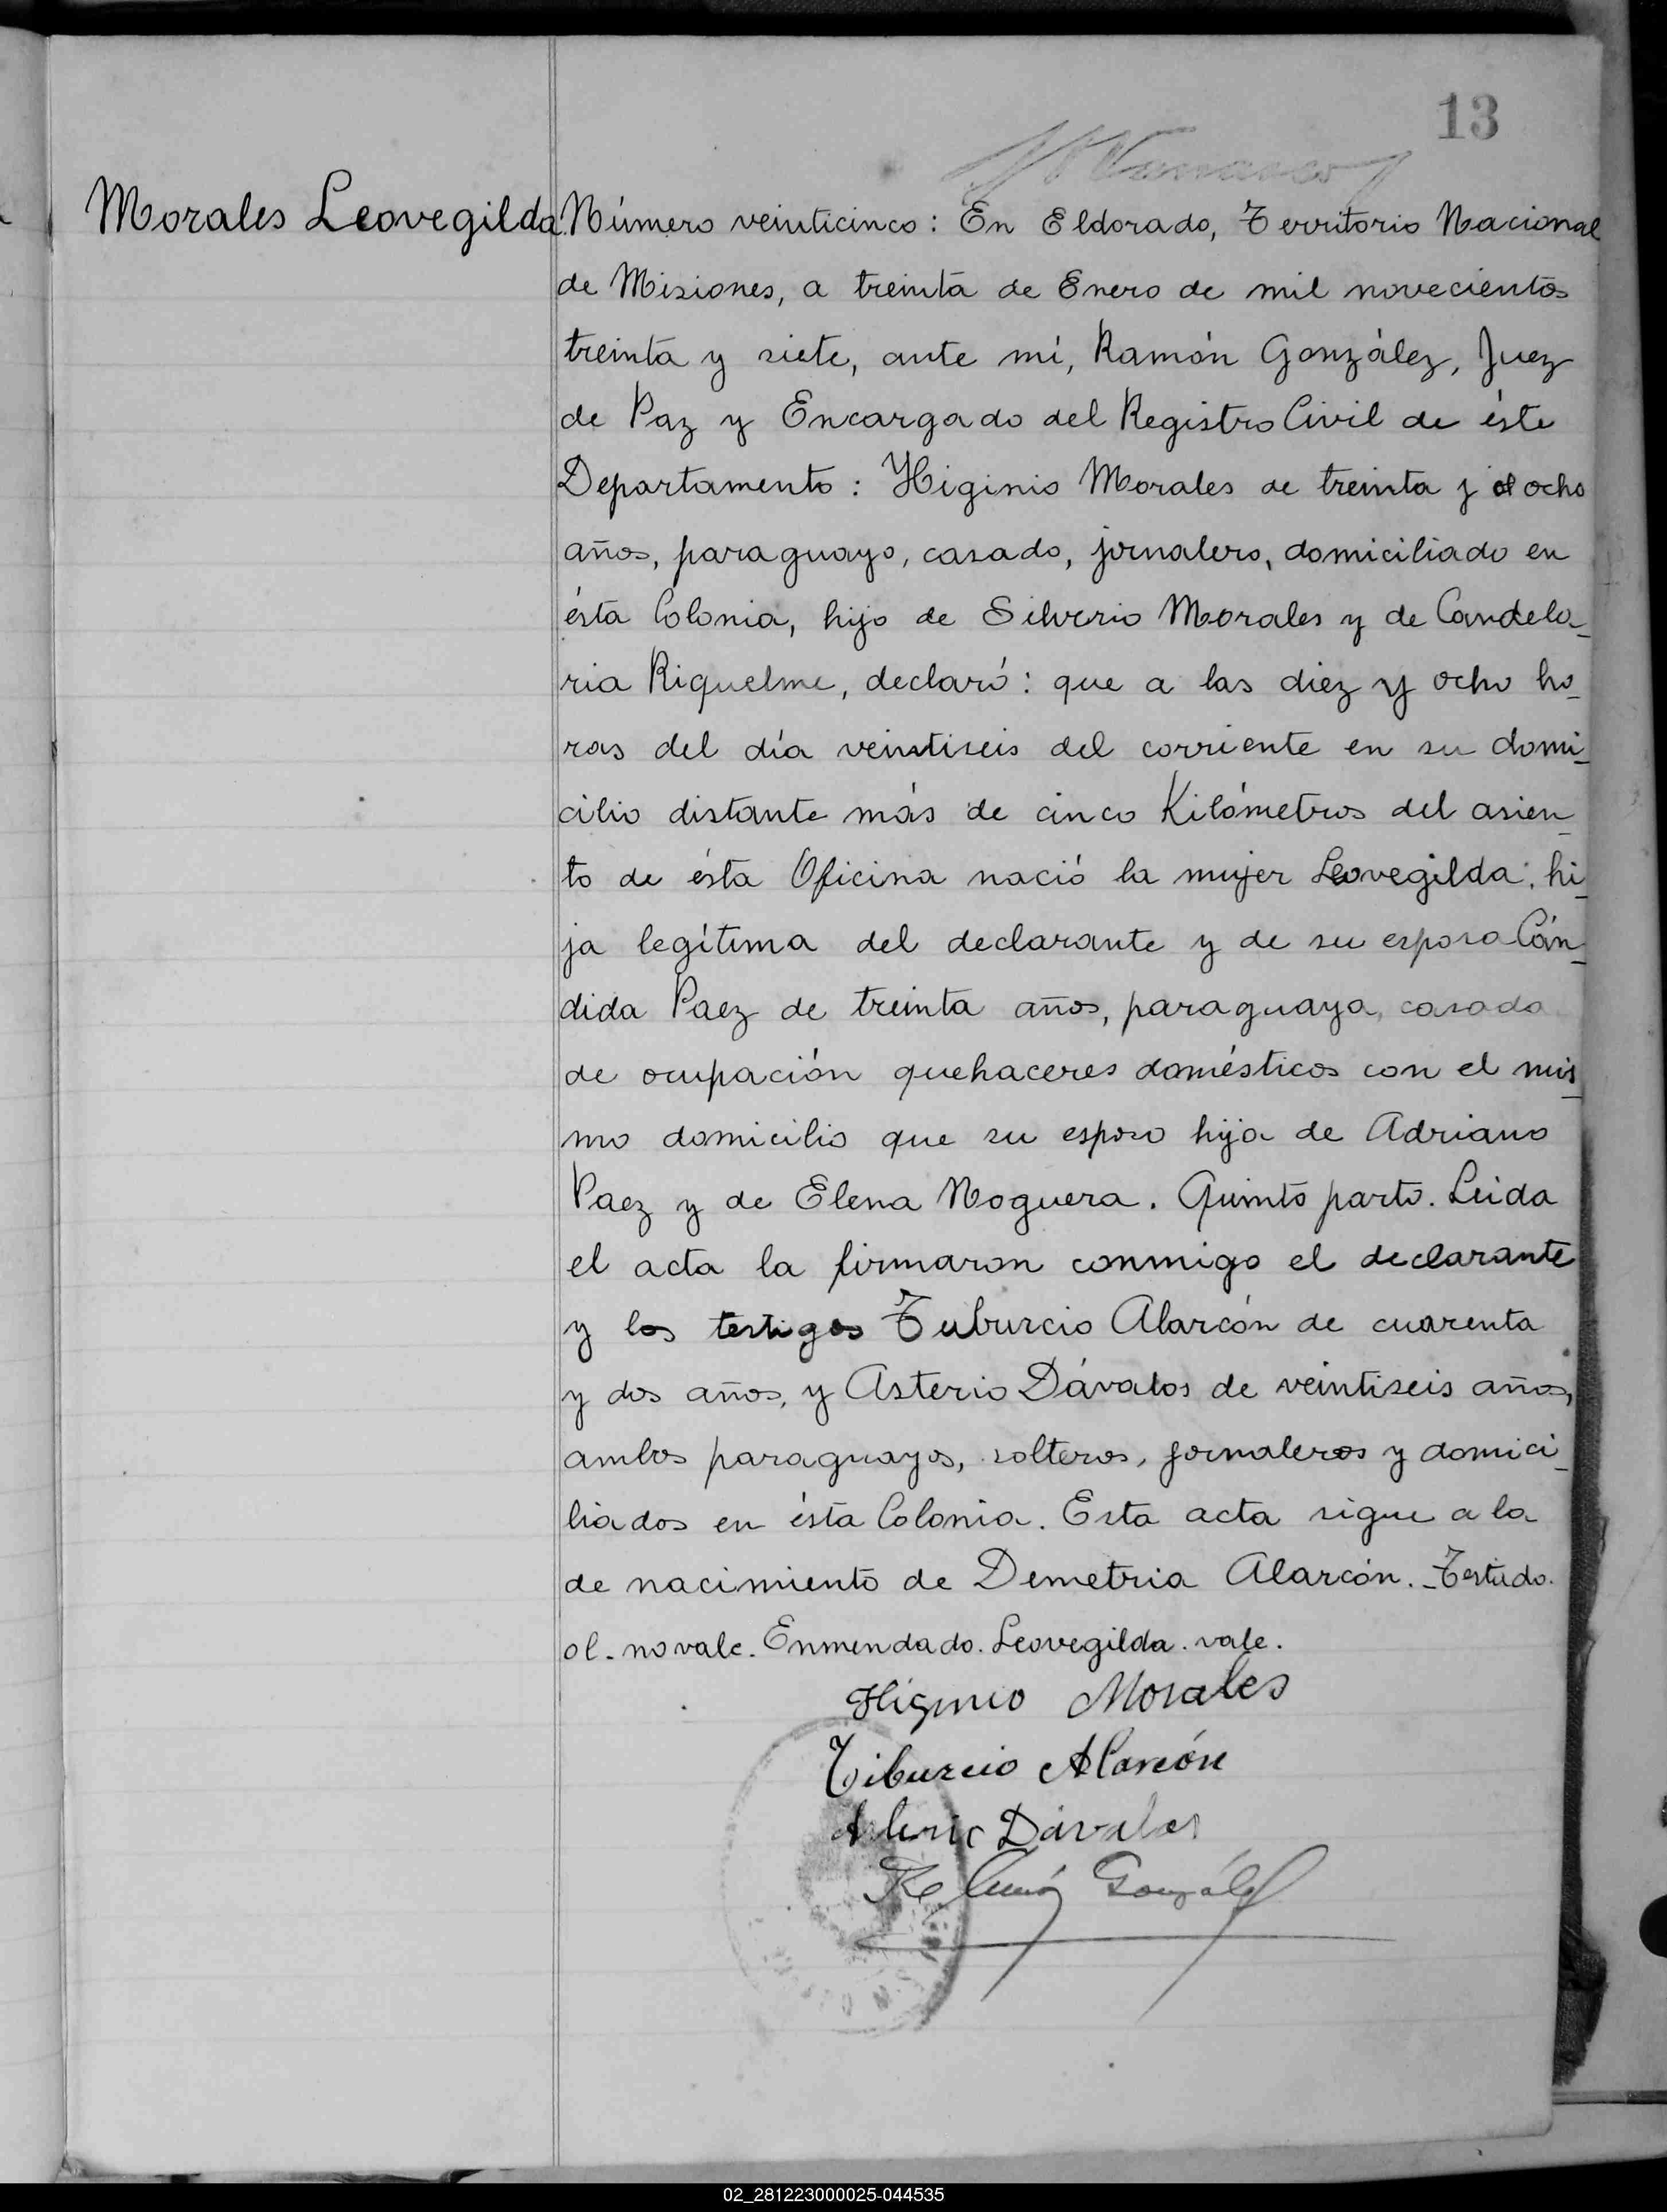 13
Morales Leovegilda
Número veinticinco: En Eldorado, Territorio Nacional
de Misiones, a treinta de Enero de mil novecientos
treinta y siete, ante mí, Ramón González, Juez
de Paz y Encargado del Registro Civil de ésta
Departamento: Higinio Morales de treinta y ol ocho
años, paraguayo, casado, jornalero, domiciliado en
ésta Colonia, hijo de Silverio Morales y de Candela_
ria Riquelme, declaró: que a las diez y ocho ho_
ras del día veintiseis del corriente en su domi_
cilio distante más de cinco Kilómetros del asien_
to de ésta Oficina nació la mujer Leovegilda; hi_
ja legítima del declarante y de su esposa Cán_
dida Paez de treinta años, paraguaya, casada
de ocupación quehaceres domésticos con el mis_
mo domicilio que su esposo hija de Adriano
Paez y de Elena Noguera. Quinto parto. Leida
el acta la firmaron conmigo el declarante
y los testigos Tuburcio Alarcón de cuarenta
y dos años, y Asterio Dávalos de veintiseis años,
ambos paraguayos, solteros, jornaleros y domici_
liados en ésta Colonia. Esta acta sigue a la
de nacimiento de Demetria Alarcón._Testado.
ol. no vale. Enmendado. Leovegilda. vale.
Higinio Morales
Tiburcio Alarcón
Dávalos
Ramón González
02_281223000025-044535